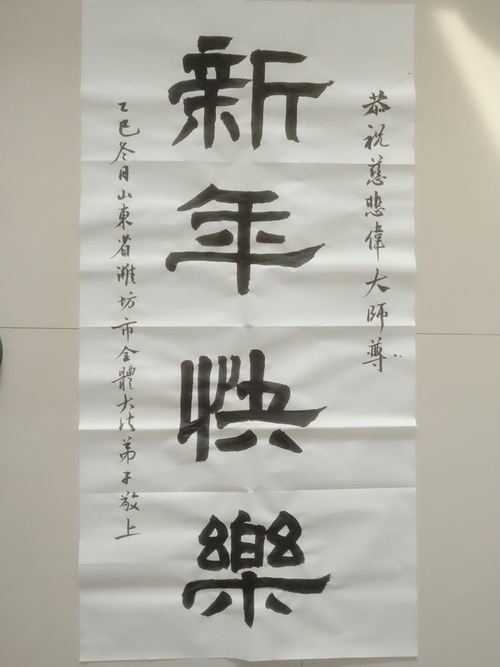 恭祝慈悲偉大師尊
新年快樂
乙巳冬日山東省濰坊市全體大法弟子敬上